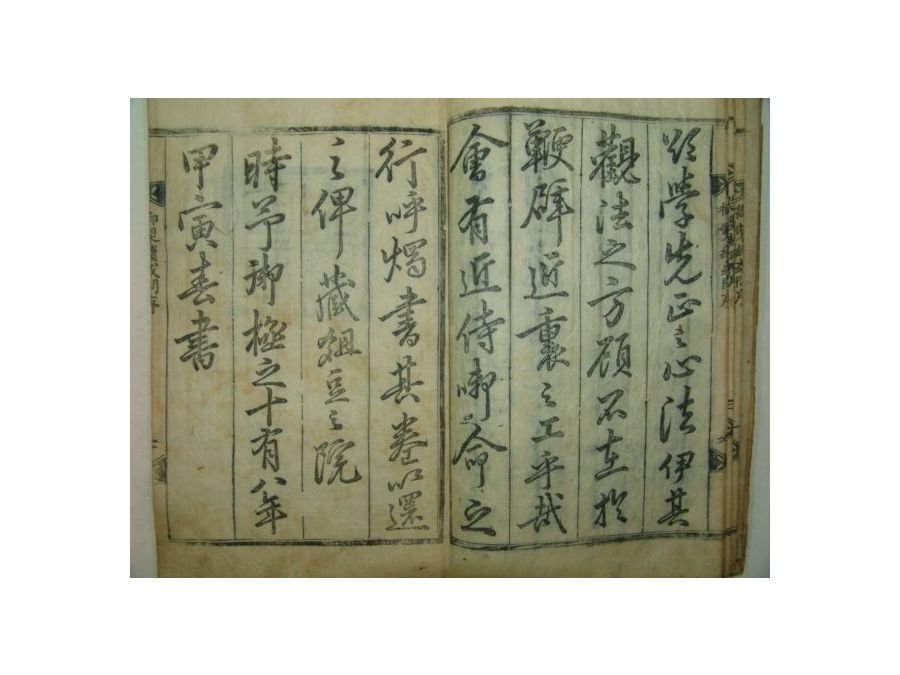 欲學先正之心法伊其
觀法之方顧不在於
鞭辟近裏之工乎哉
會有近侍啣命之
行呼燭書其卷以還
之俾藏俎豆之院
時予御極之十有八年
甲寅春書
御製續或問序